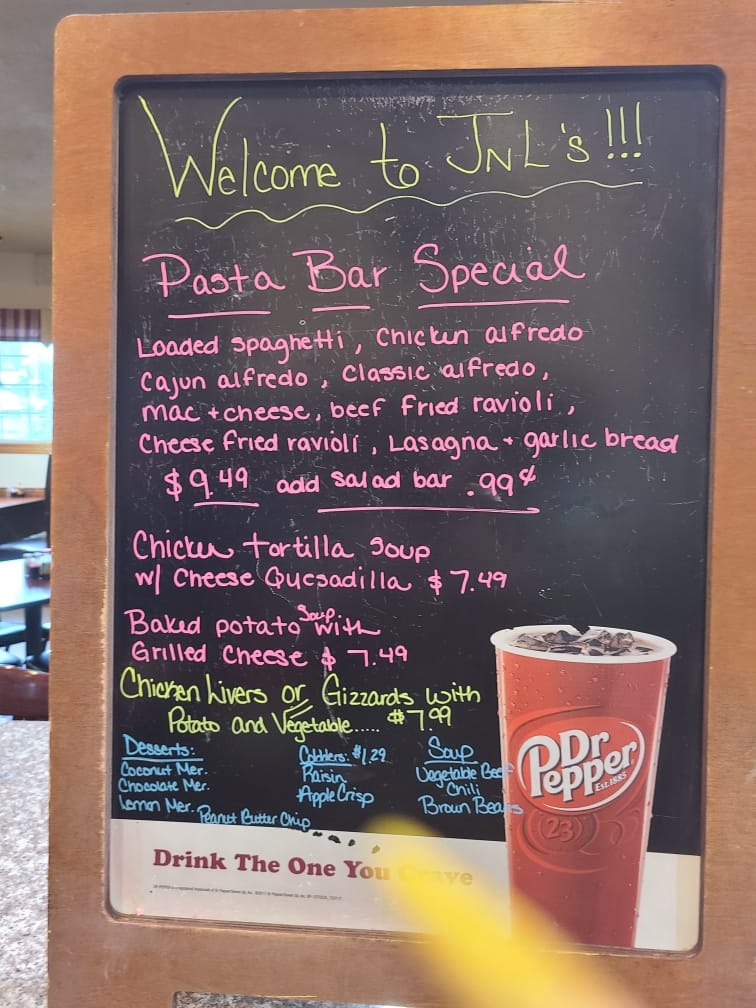 Welcome to JNL's!!!
Pasta Bar Special
Loaded spaghetti, Chicken alfredo
Cajun alfredo, Classic alfredo,
mac + cheese, beef fried ravioli,
Cheese fried ravioli, Lasagna + garlic bread
$9.49 add salad bar .99¢
Chicken tortilla Soup
w/ Cheese Quesadilla $7.49
Baked potato Soup with
Grilled Cheese $7.49
Chicken Livers or Gizzards with
Potato and Vegetable..... $7.99
Desserts:
Coconut Mer.
Chocolate Mer.
Lemon Mer.
Peanut Butter Chip
Cobblers: $1.29
Raisin
Apple Crisp
Soup
Vegetable Beef
Chili
Brown Beans
Dr Pepper
Est. 1885
23
Drink The One You Crave